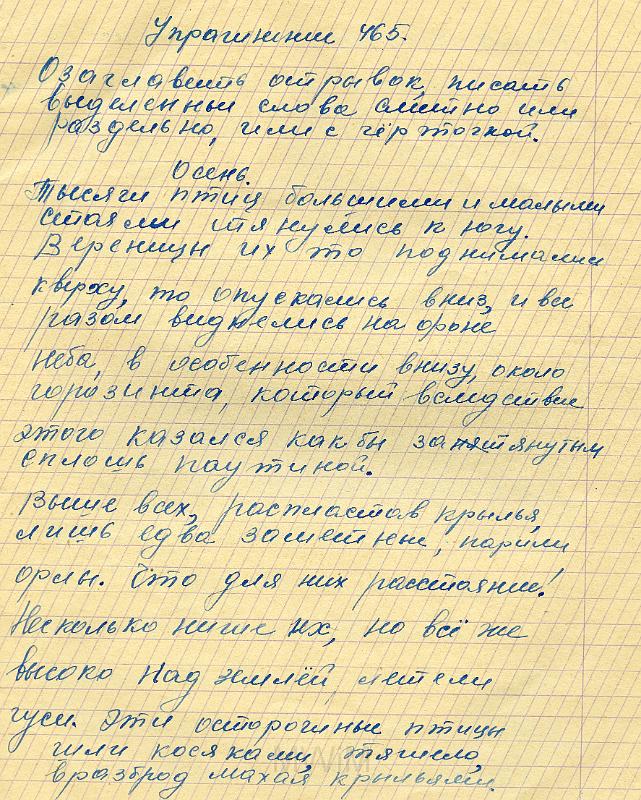 Упражнение 465.
Озаглавить отрывок, писать
выделенные слова слитно или
раздельно, или с чёрточкой.
Осень.
Тысячи птиц большими и малыми
стаями тянулись к югу.
Вереницы их то поднимались
кверху, то опускались вниз, и все
разом виднелись на фоне
неба, в особенности внизу, около
горазинта, который вследствие
этого казался как бы затянутым
сплошь паутиной.
Выше всех, распластав крылья,
лишь едва заметные, парили
орлы. Что для них расстояние!
Несколько ниже их, но всё же
высоко над землёй летели
гуси. Эти осторожные птицы
шли косяками, тяжело,
вразброд махая крыльями.